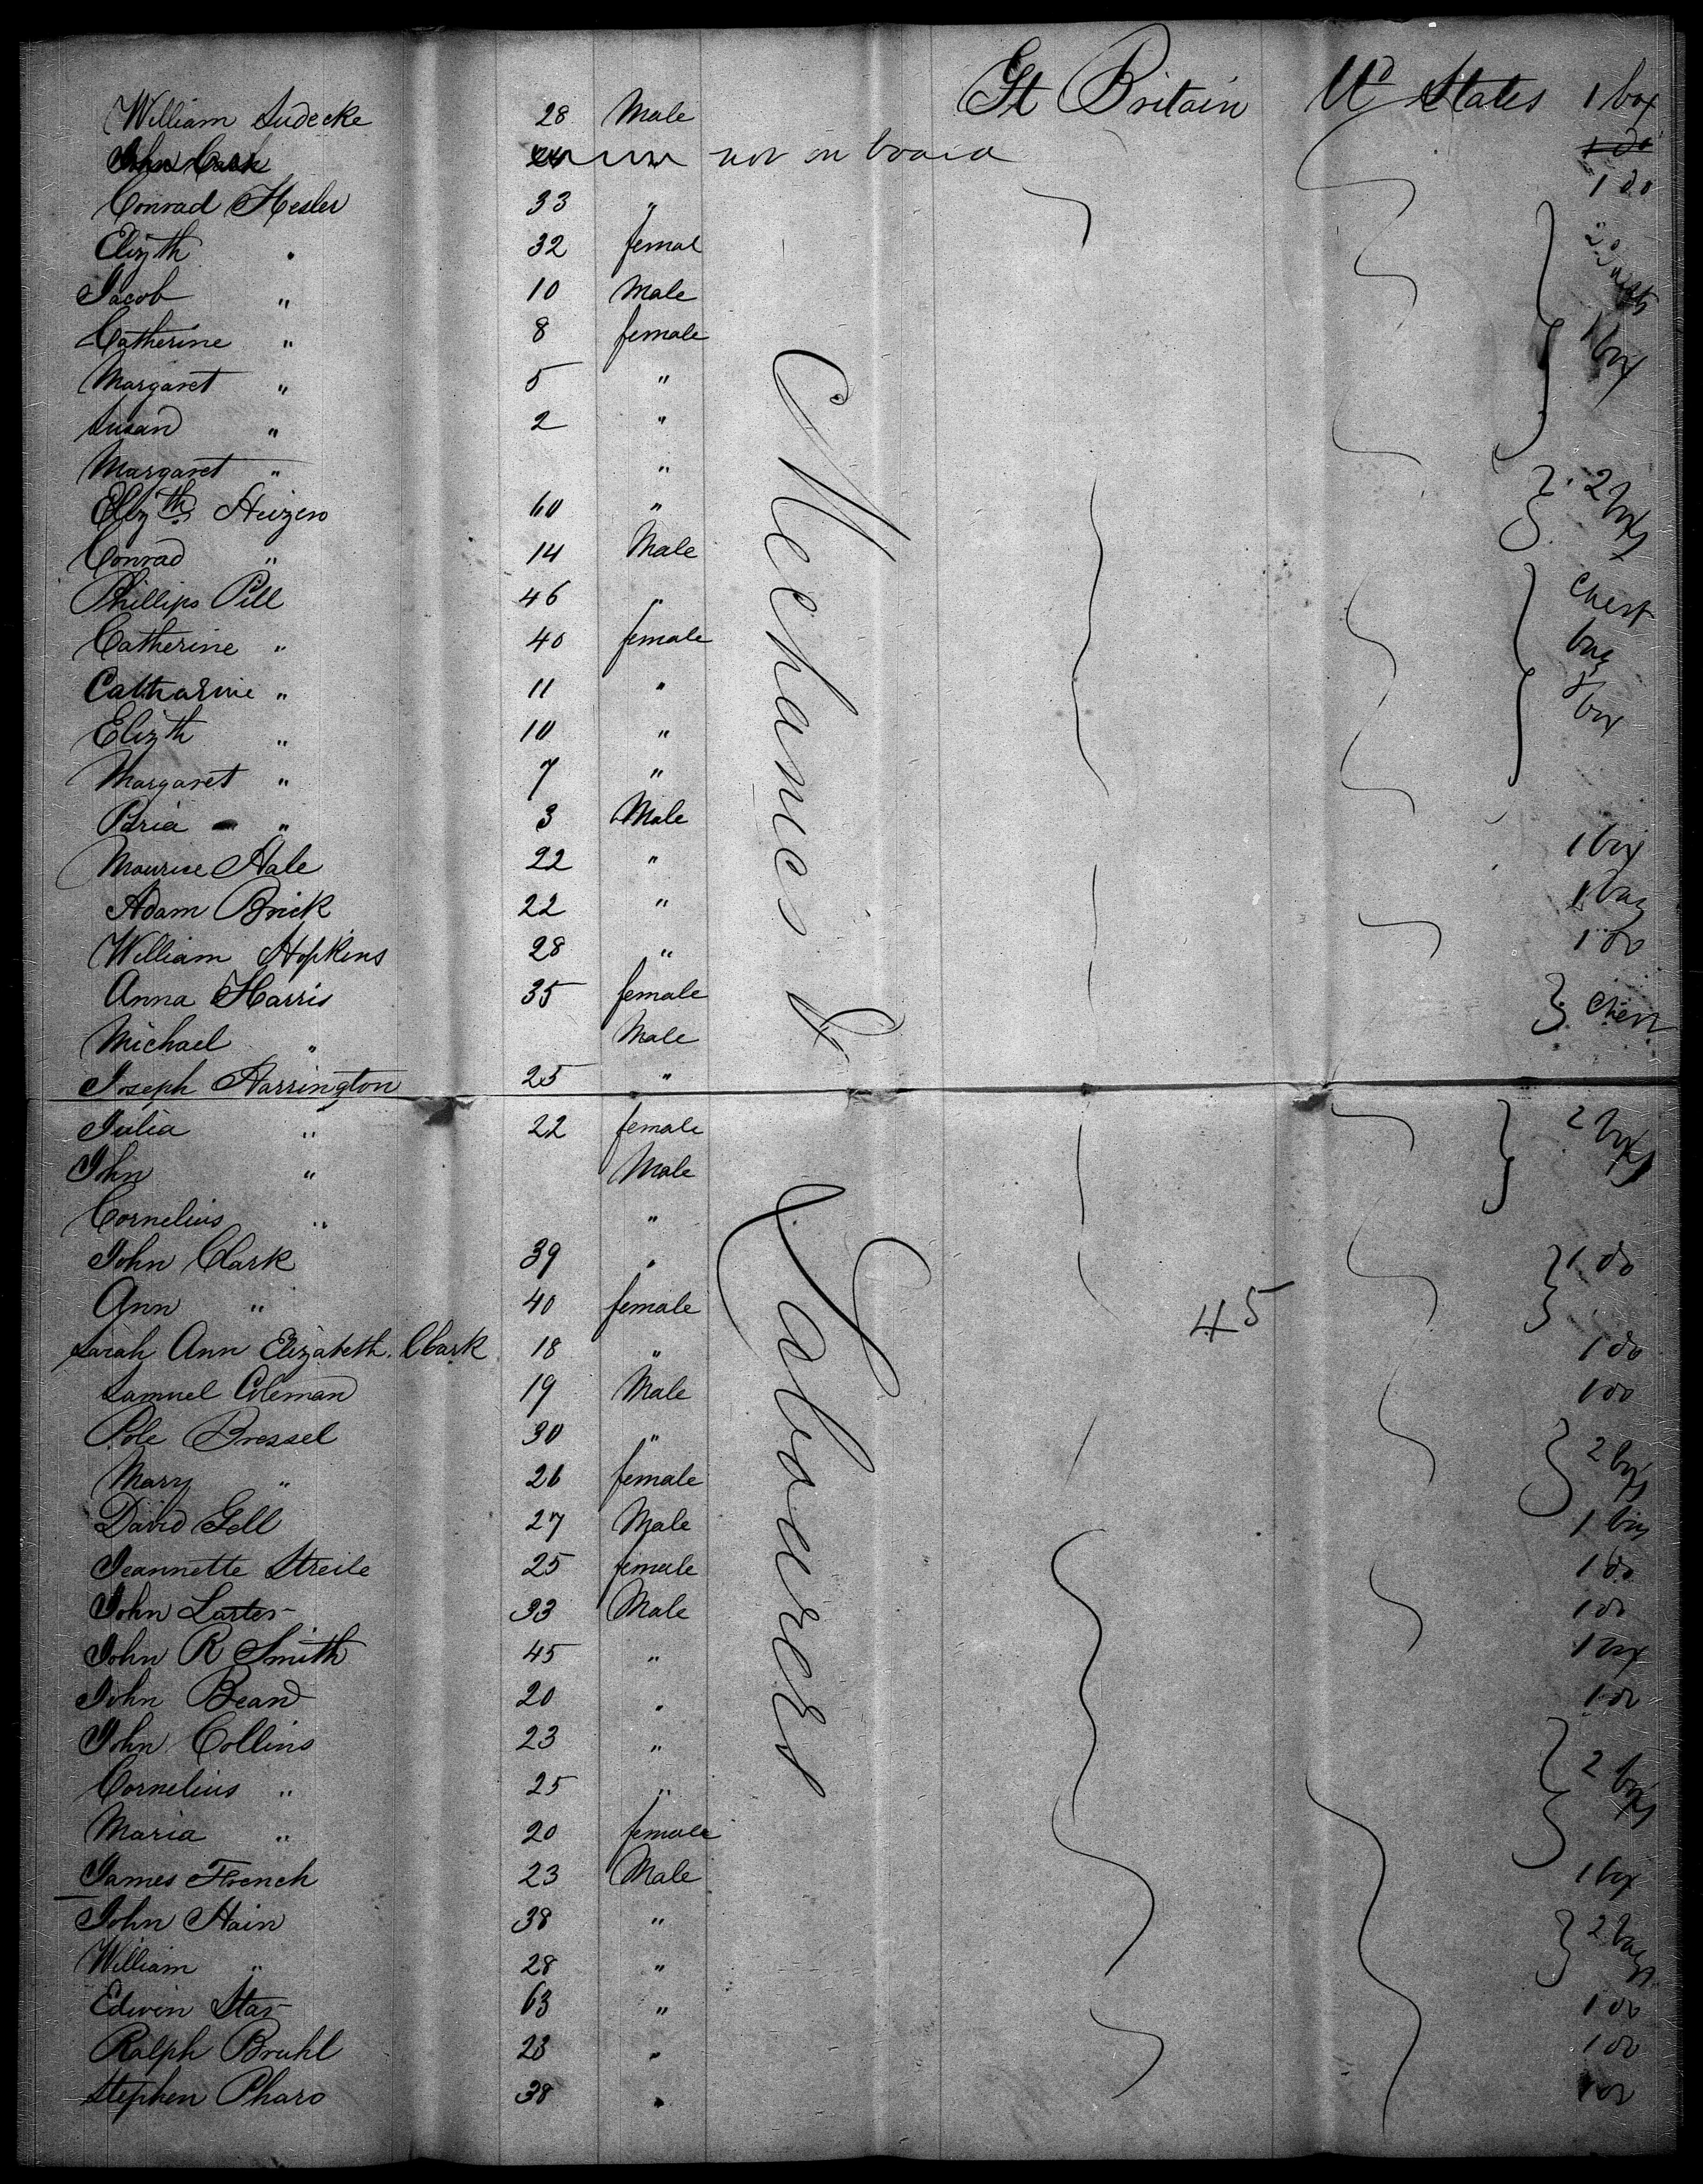 William Sudecke 28 Male Gt Britain Ud States 1 box
John Cark 24 not on board 1 do
Conrad Hesler 33 " 1 do
Elizth " 32 femal
Jacob " 10 Male
Catherine " 8 female 1 box
Margaret " 5 "
Susan " 2 "
Margaret " "
Elizth Heizen 60 " 2 bxs
Conrad " 14 Male
Phillips Pill 46 " Chest
Catherine " 40 female bag
Catharine " 11 " & box
Elizth " 10 "
Margaret " 7 "
" 3 Male
Maurice Hale 22 " 1 box
Adam Brick 22 " 1 bag
William Hopkins 28 " 1 do
Anna Harris 35 female Chest
Michael " Male
Joseph Harrington 25 "
Julia " 22 female 2 bxs
John " Male
Cornelius " "
John Clark 39 " 1 do
Ann " 40 female 45
Sarah Ann Elizabeth. Clark 18 " 1 do
Samuel Coleman 19 Male 1 do
Pole Bressel 30 " 2 bxs
Mary " 26 female
David Gell 27 Male 1 box
Jeannette Streile 25 female 1 do
John Larter 33 Male 1 do
John R Smith 45 " 1 box
John Bean 20 " 1 do
John Collins 23 " 2 bxs
Cornelius " 25 "
Maria " 20 female
James French 23 Male 1 box
John Hain 38 " 2 bags
William " 28 "
Edwin Star 63 " 1 do
Ralph Bruhl 23 " 1 do
Stephen Pharo 38 " 1 do
Mechanics & Labourers